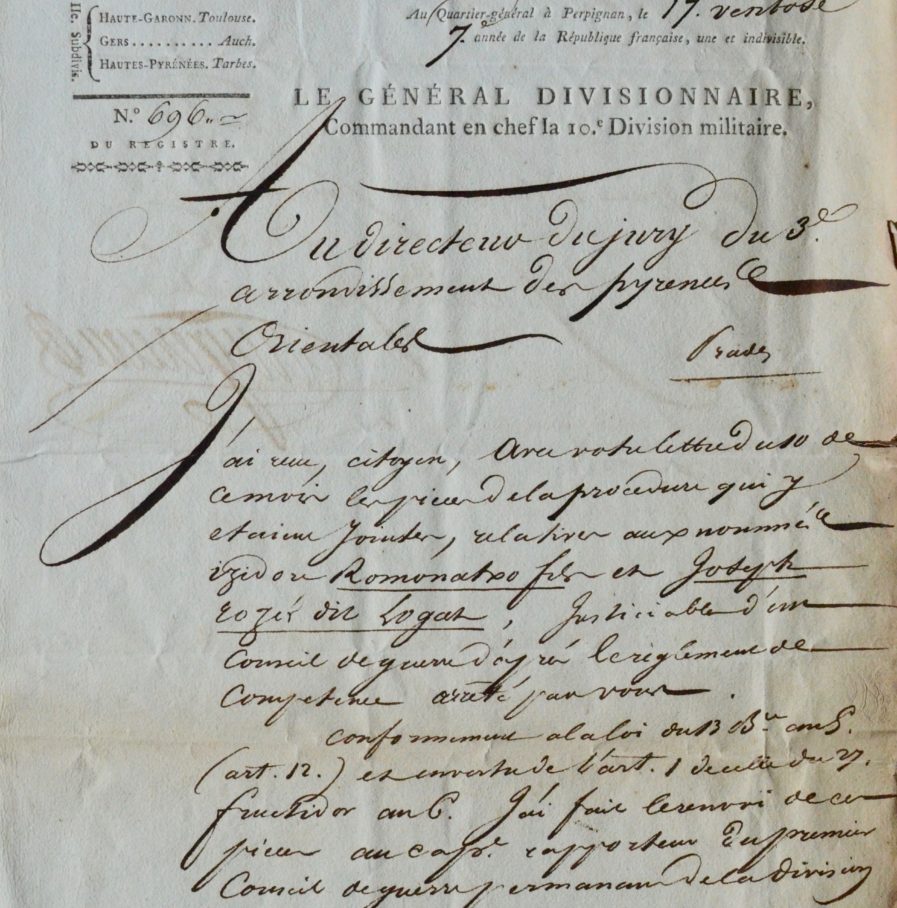 IIe. Subdivis.
HAUTE-GARONN. Toulouse.
GERS .......... Auch.
HAUTES-PYRÉNÉES. Tarbes.
N.° 696.
DU REGISTRE.
Au Quartier-général à Perpignan, le 17. ventose
7.e année de la République française, une et indivisible.
LE GÉNÉRAL DIVISIONNAIRE,
Commandant en chef la 10.e Division militaire.
Au directeur du jury du 3.e
arrondissement des pyrenees
Orientales
Prades
J'ai recu, citoyen, avec votre lettre du 10 de
ce mois les pieces de la procedure qui y
etaient jointes, relatives aux nommés
izidore Romonatxo fils et Joseph
rozés dit Logat, Justiciable d'un
Conseil de guerre d'après le règlement de
Competence arrêté par vous.
conformement a la loi du 13 B.re an 5.
(art. 12.) et en vertu de l'art. 1 de celle du 27.
fructidor an 6. J'ai fait le renvoi de ces
pieces au cap.e rapporteur du premier
Conseil de guerre permanent de la division